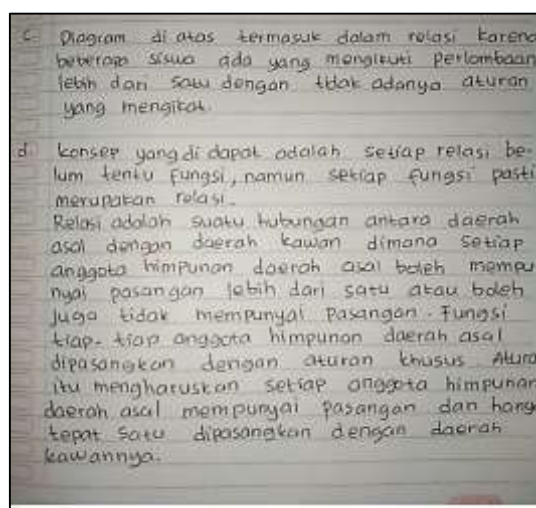 c. Diagram di atas termasuk dalam relasi karena
beberapa siswa ada yang mengikuti perlombaan
lebih dari satu dengan tidak adanya aturan
yang mengikat.
d. Konsep yang di dapat adalah setiap relasi be-
lum tentu fungsi, namun setiap fungsi pasti
merupakan relasi.
Relasi adalah suatu hubungan antara daerah
asal dengan daerah kawan dimana setiap
anggota himpunan daerah asal boleh mempu
nyai pasangan lebih dari satu atau boleh
juga tidak mempunyai pasangan. Fungsi
tiap-tiap anggota himpunan daerah asal
dipasangkan dengan aturan khusus Atura
itu mengharuskan setiap anggota himpunan
daerah asal mempunyai pasangan dan hany
tepat satu dipasangkan dengan daerah
kawannya.